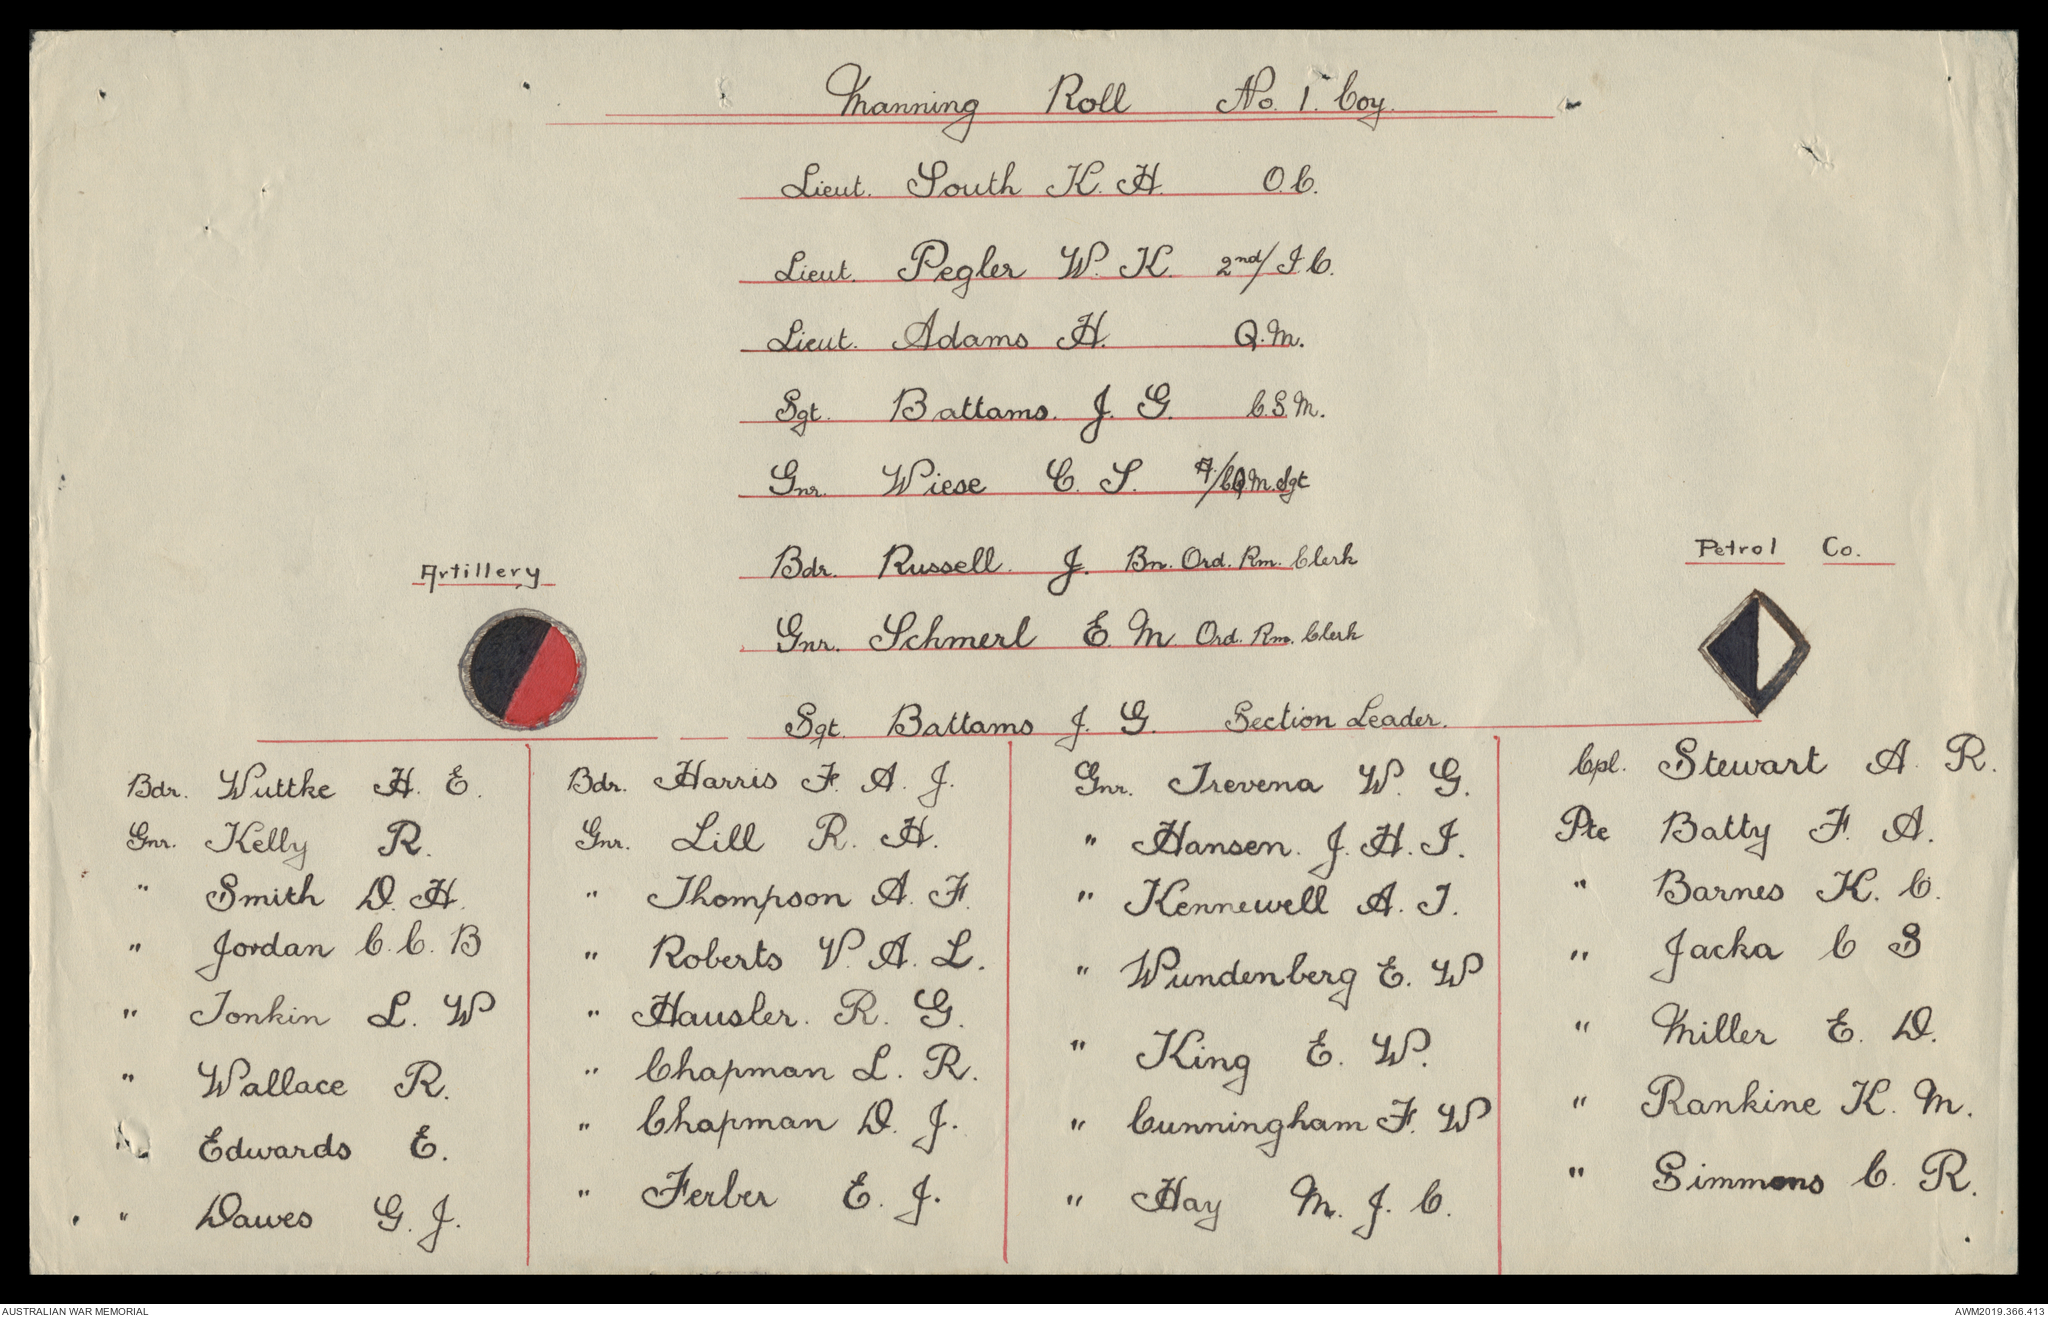 Manning Roll No. 1. Coy.
Lieut. South K. H. O.C.
Lieut. Pegler W. K. 2nd/I.C.
Lieut. Adams H. Q.M.
Sgt. Battams. J. G. C.S.M.
Gnr. Wiese C. S. A/CQ.M.Sgt
Bdr. Russell. J. Bn. Ord. Rm. Clerk
Gnr. Schmerl E. M Ord. Rm. Clerk
Artillery
Petrol Co.
Sgt. Battams J. G. Section Leader.
Bdr. Wuttke H. E.
Gnr. Kelly R.
" Smith D. H.
" Jordan C. C. B
" Tonkin L. W
" Wallace R.
Edwards E.
" Dawes G. J.
Bdr. Harris F. A. J.
Gnr. Lill R. H.
" Thompson A. F.
" Roberts V. A. L.
" Hausler. R. G.
" Chapman L. R.
" Chapman D. J.
" Ferber E. J.
Gnr. Trevena W. G.
" Hansen. J. H. I.
" Kennewell A. J.
" Wundenberg E. W
" King E. W.
" Cunningham F. W
" Hay M. J. C.
Cpl. Stewart A. R.
Pte Batty F. A.
" Barnes K. C.
" Jacka C S
" Miller E. D.
" Rankine K. M.
" Simmons C. R.
AUSTRALIAN WAR MEMORIAL
AWM2019.366.413